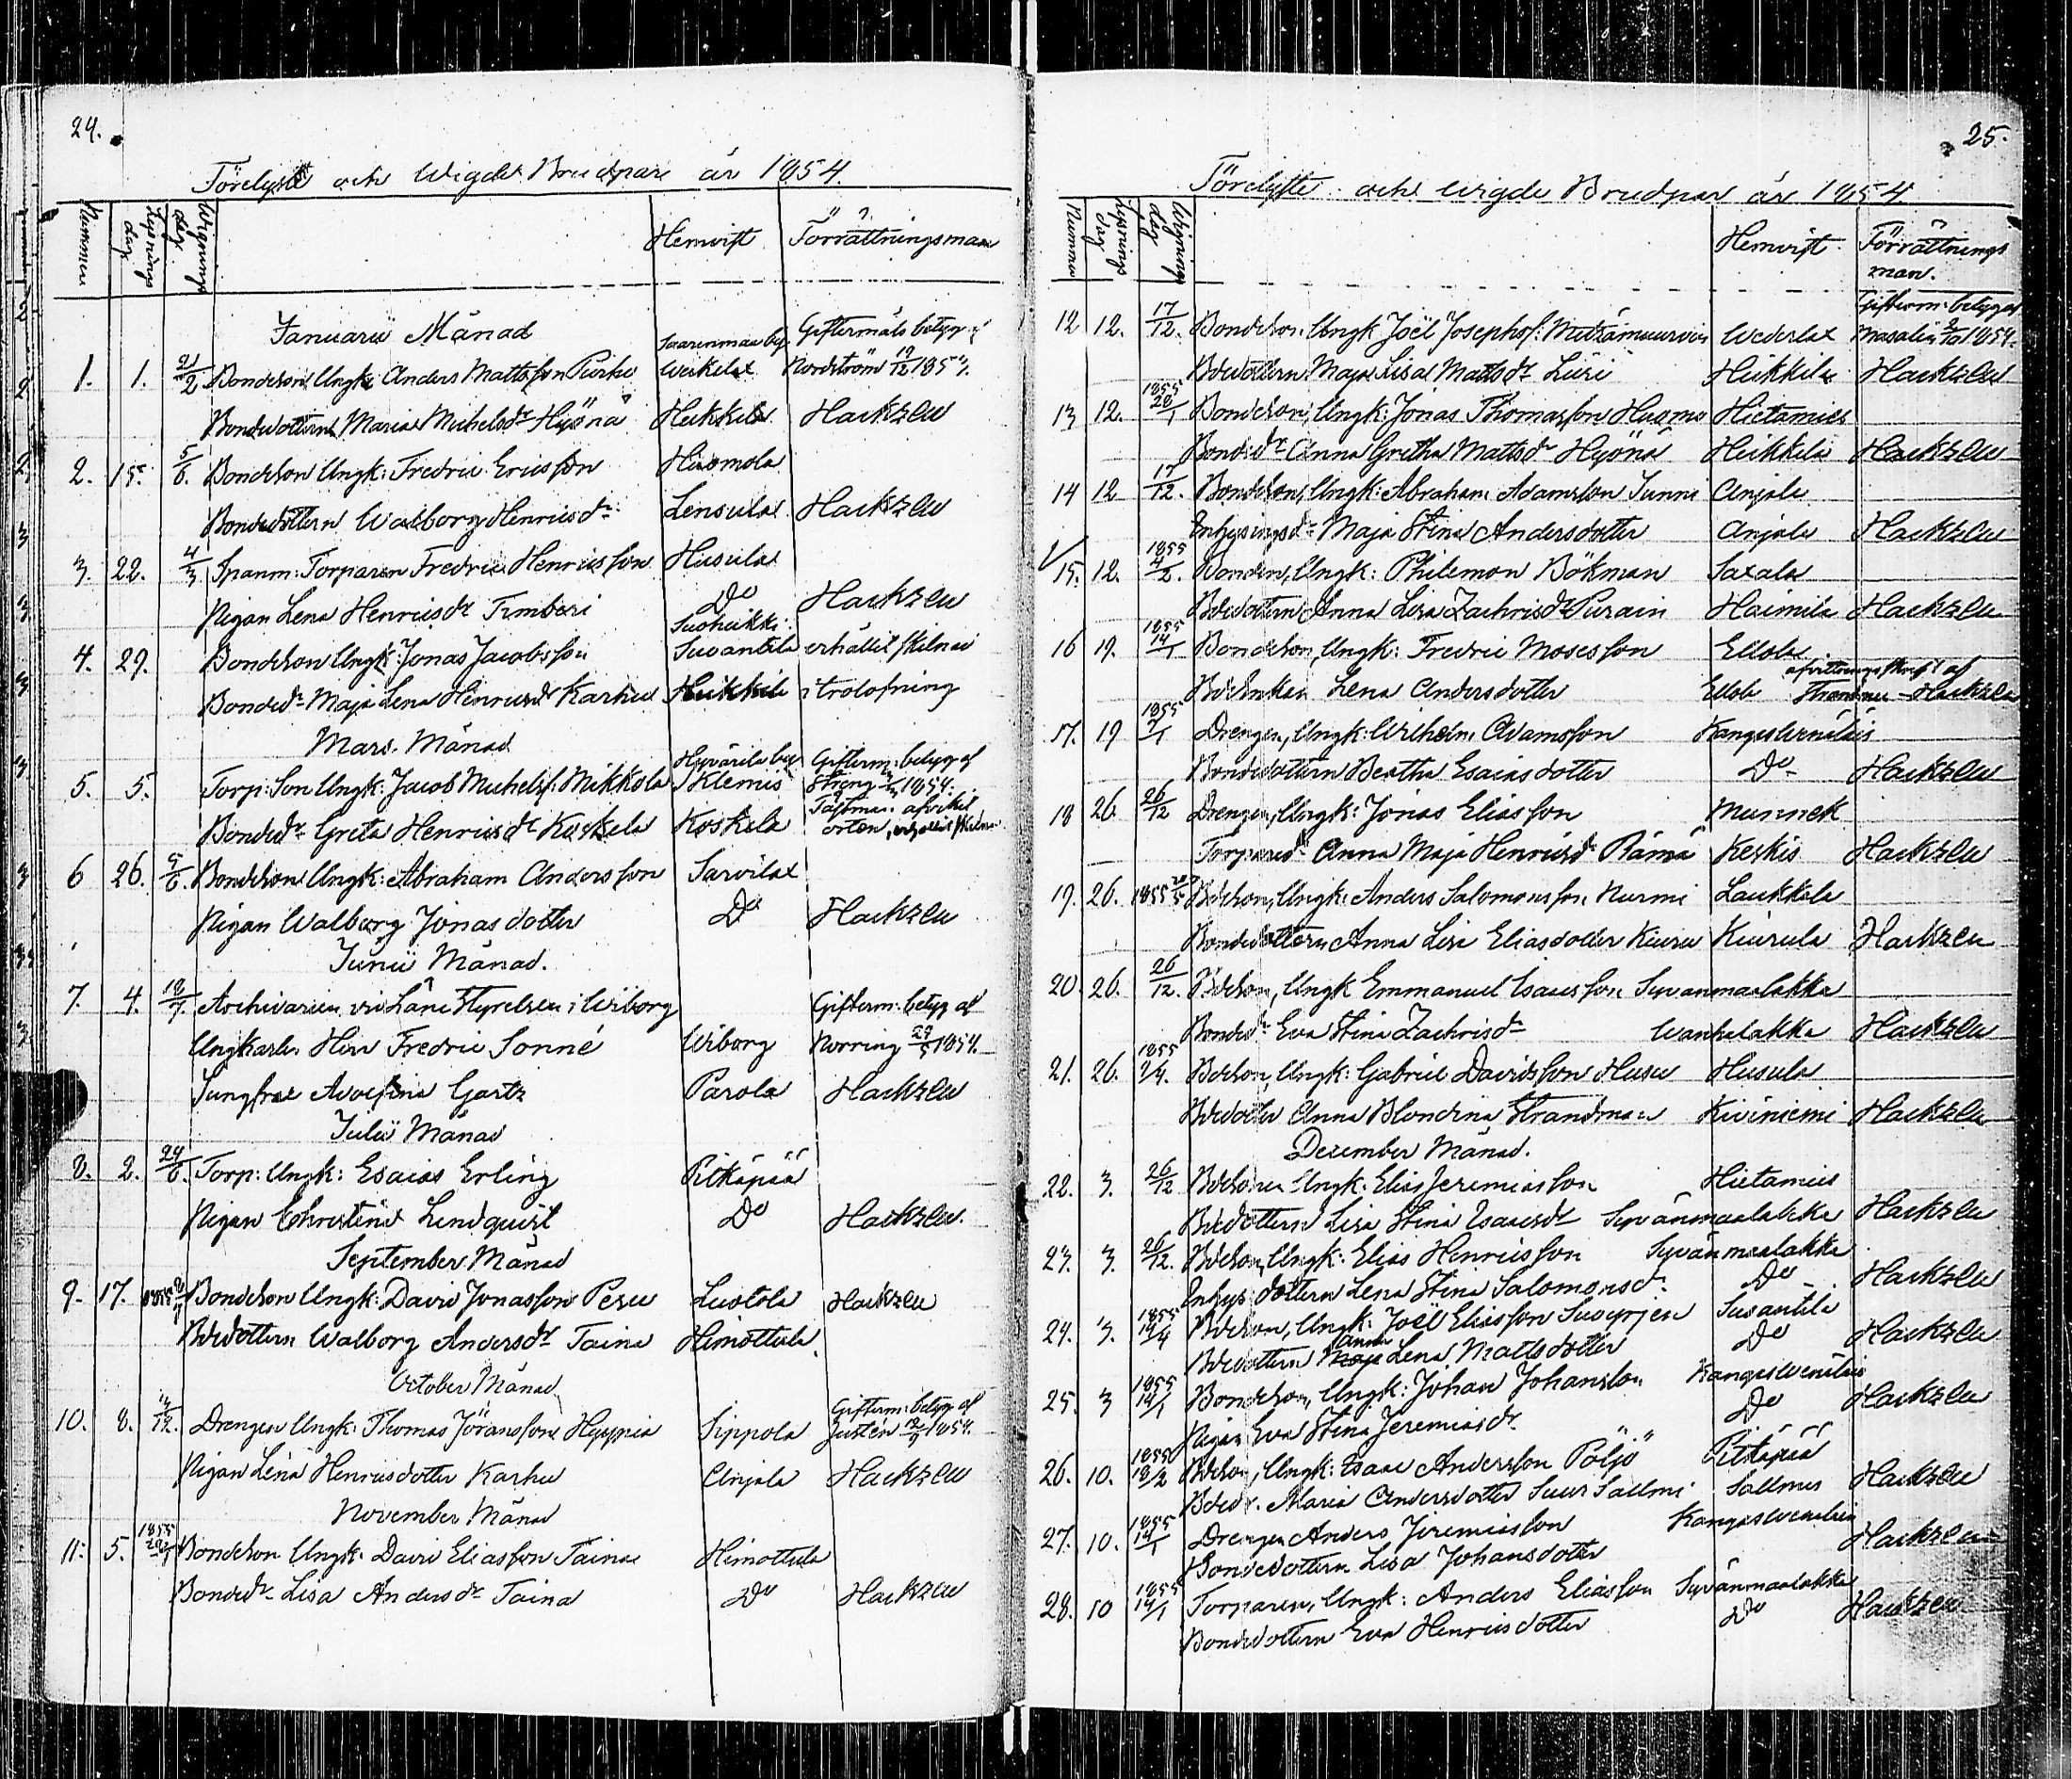 24.
Förelyste och Wigde Brudpar år 1854.
Nummer Lysnings dag Wignings dag Hemvist Förrättningsman
Januarii Månad
Giftermåls betyg af
1. 1. 21/2 Bondeson Ungk: Anders Mattsson Wirkelax Nordström 19/12 1853.
Bondedottern Maria Michelsdr Hyönä Heikkilä Hackzell
2. 15. 5/6. Bondeson Ungk: Fredric Ericsson Husmola
Bondedottern Walborg Henricsdr Lensula Hackzell
3. 22. 4/3 Spanm: Torparen Fredric Henricsson Husula
Pigan Lena Henricsdr Timberi Do Hackzell
4. 29. Bondeson Ungk: Jonas Jacobsson Suvantila erhållit skilnad
Bondedr Maja Lena Henricsdr Karhu Heikkilä i trolofning
Mars. Månad
Hyvärilä by Gifterm: betyg af
5. 5. Torp: Son Ungk: Jacob Michelss: Mikkola Klemis Streng 1854.
Fästman afvikit
Bondedr Greta Henricsdr Koskela Koskela orten, erhållit skilnad
6 26. 5/6. Bondeson Ungk: Abraham Andersson Sarvilax
Pigan Walborg Jonasdotter Do Hackzell
Junii Månad.
7. 4. 18/7. Archivarien vid Läne Styrelsen i Wiborg Gifterm: betyg af
Ungkarlen Herr Fredric Sonné Wiborg Norring 29/5 1854.
Jungfru Adolfina Gartz Parola Hackzell
Julii Månad
8. 2. 24/6. Torp: Ungk: Esaias Erling Pitkäpää
Pigan Christina Lindqvist Do Hackzell.
September Månad
9. 17. 1855 Bondeson Ungk: David Jonasson Pesu Lustola Hackzell
Bdedottern Walborg Andersdr Taina Himottula.
October Månad
Gifterm: betyg af
10. 8. Drengen Ungk: Thomas Jöransson Hyppiä Sippola Justén 12/9 1854.
Pigan Lena Henricsdotter Karhu Anjala Hackzell
November Månad
1855
11. 5. Bondeson Ungk: David Eliasson Taina Himottula
Bondedr Lisa Andersdr Taina Do Hackzell
25.
Förelyste och wigde Brudpar år 1854
Nummer Lysnings dag Wignings dag Hemvist Förrättnings man.
Gifterm: betyg af
12 12. 17/12. Bondeson Ungk Joël Josephss: Wederlax Masalin 1854.
Bdedottern Maja Lisa Mattsdr Liiri Heikkilä Hackzell
1855
13 12. 28/1 Bondeson, Ungk: Jonas Thomasson Huomo Hietamies
Bondedr Anna Gretha Mattsdr Hyönä Heikkilä Hackzell
14 12 17/12. Bondeson, Ungk: Abraham Adamsson Junni Anjala
Inhysingsdr Maja Stina Andersdotter Anjala Hackzell
1855
15. 12. 4/2. Bonden, Ungk: Philemon Bökman Saxala
Bdedottern Anna Lisa Zachrisdr Purain Haimila Hackzell
1855
16 19. 14/1 Bondeson, Ungk: Fredric Mosesson Ellola
Bdeenkan Lena Andersdotter Ellola Hackzell
1855
17. 19 7/1 Drengen, Ungk: Wilhelm Adamsson Kangasvernälais
Bondedottern Beatha Esaiasdotter Do Hackzell
18 26. 26/12 Drengen, Ungk: Jonas Eliasson Mummek
Torparedr Anna Maja Henricsdr Rämä Keskis Hackzell
19. 26. 1855 Bdeson, Ungk: Anders Salomonsson Nurmi Laukkala
Bondedottern Anna Lisa Eliasdotter Kiuru Kiurula Hackzell
20. 26. 26/12. Bdeson, Ungk Emmanuel Isacsson Syvänmaalakka
Bondedr Eva Stina Zachrisdr Wanhalakka Hackzell
1855
21. 26. 9/4. Bdeson, Ungk: Gabriel Davidsson Husu Husula
Bdedotter Anna Blondina Strandman Kiviniemi Hackzell
December Månad.
22. 3. 26/12 Bdesonen Ungk: Elias Jeremiasson Hietamies
Bdedottern Lisa Stina Isacsdr Syvänmaalakka Hackzell
23. 3. 26/12. Bdeson, Ungk: Elias Henricsson Syvänmaalakka
Inhys dottern Lena Stina Salomonsdr: Do Hackzell
1855
24. 3. Bdeson, Ungk: Joël Eliasson Suvantila
Bdedottern Maja Anna Lena Mattsdotter Do Hackzell
1855
25. 3 14/1 Bondeson, Ungk: Johan Johansson Kangasvernälais
Pigan Eva Stina Jeremiasdr Do Hackzell
1855
26. 10. 18/2 Bdeson, Ungk: Isaac Andersson Pöljö Pitkäpää
Bdedr. Maria Andersdotter Suur Salmi Salmis Hackzell
1855
27. 10. 14/1 Drengen Anders Jeremiasson Kangasvernälais
Bondedottern Lisa Johansdotter Hackzell
1855
28. 10 14/1 Torparen, Ungk: Anders Eliasson Syvänmaalakka
Bondedottern Eva Henricsdotter Do Hackzell